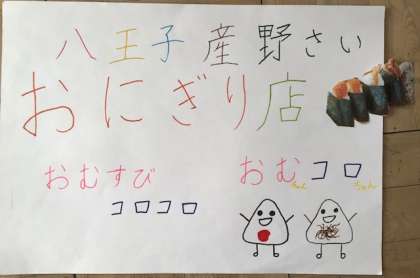 八王子産野さい
おにぎり店
おむすび
コロコロ
おむコロ
ちゃん ちゃん